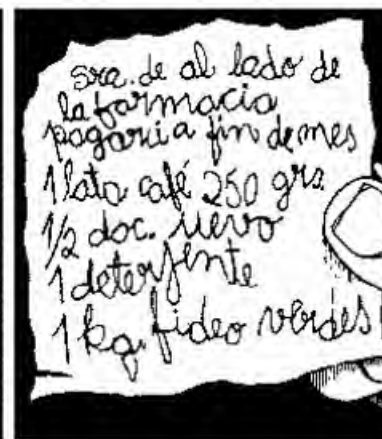 sra. de al lado de
la farmacia
pagaria a fin de mes
1 lata café 250 grs.
1/2 doc. uevo
1 deterjente
1 kg. fideo verdes